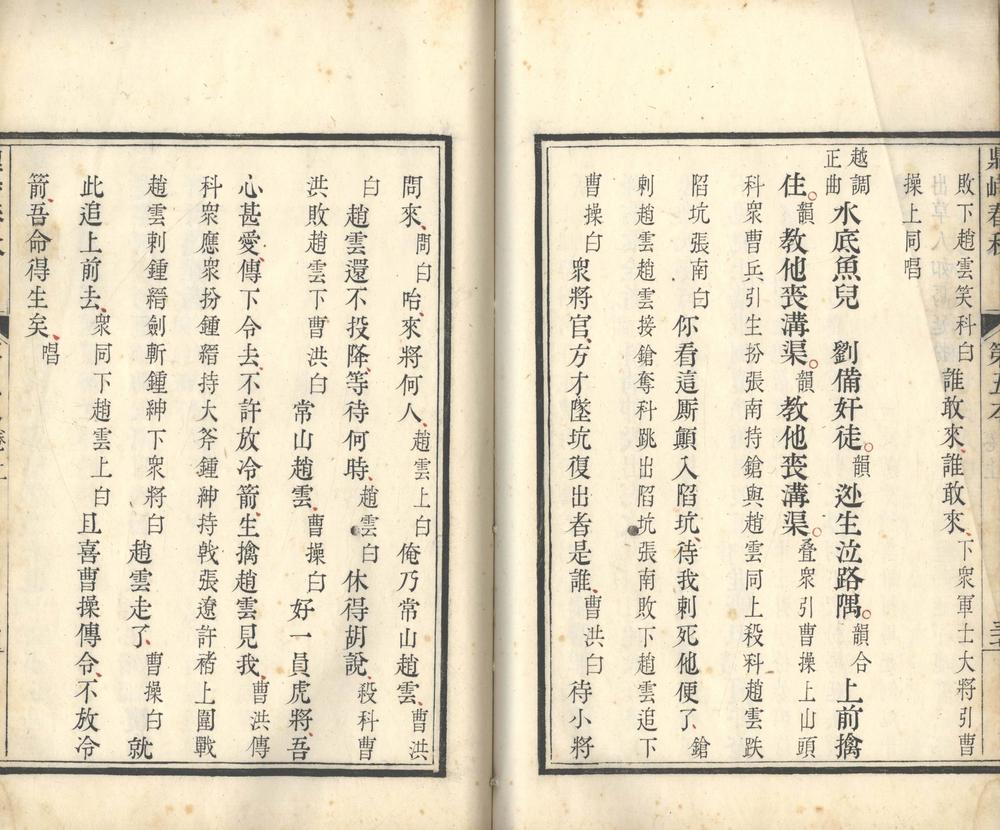 鼎峙春秋
第五本
敗下趙雲笑科白誰敢來誰敢來下衆軍士大將引曹
操上同唱
越調
正曲
水底魚兒 劉備奸徒韻迯生泣路隅韻合上前擒
住韻教他喪溝渠韻教他喪溝渠叠衆引曹操上山頭
科衆曹兵引生扮張南持鎗與趙雲同上殺科趙雲跌
陷坑張南白你看這厮顚入陷坑待我刺死他便了鎗
刺趙雲趙雲接鎗奪科跳出陷坑張南敗下趙雲追下
曹操白衆將官方才墜坑復出者是誰曹洪白待小將
問來問白呔來將何人趙雲上白俺乃常山趙雲曹洪
白趙雲還不投降等待何時趙雲白休得胡說殺科曹
洪敗趙雲下曹洪白常山趙雲曹操白好一員虎將吾
心甚愛傳下令去不許放冷箭生擒趙雲見我曹洪傳
科衆應衆扮鍾縉持大斧鍾紳持戟張遼許褚上圍戰
趙雲刺鍾縉劍斬鍾紳下衆將白趙雲走了曹操白就
此追上前去衆同下趙雲上白且喜曹操傳令不放冷
箭吾命得生矣唱